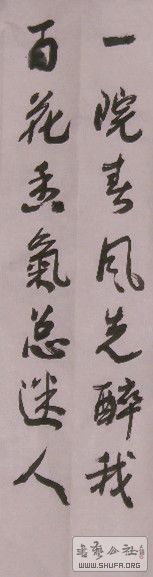 一院春风先醉我
百花香氣总迷人
书艺公社
WWW.SHUFA.ORG